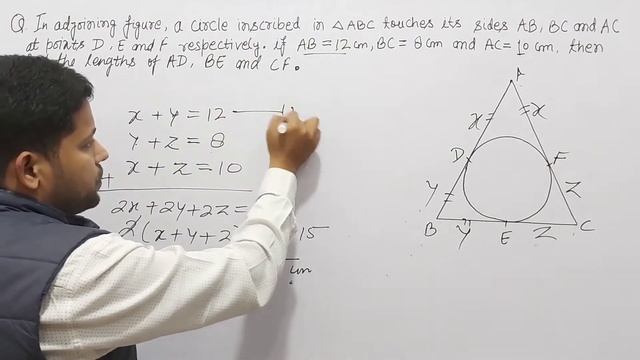 Q In adjoining figure, a circle inscribed in △ABC touches its sides AB, BC and AC
at points D, E and F respectively. if AB = 12 cm, BC = 8 cm and AC = 10 cm, then
the lengths of AD, BE and CF.
x + y = 12
y + z = 8
x + z = 10
+
2x + 2y + 2z =
2(x + y + z
15
cm
A
x
x
D
F
y
z
B
y
E
z
C